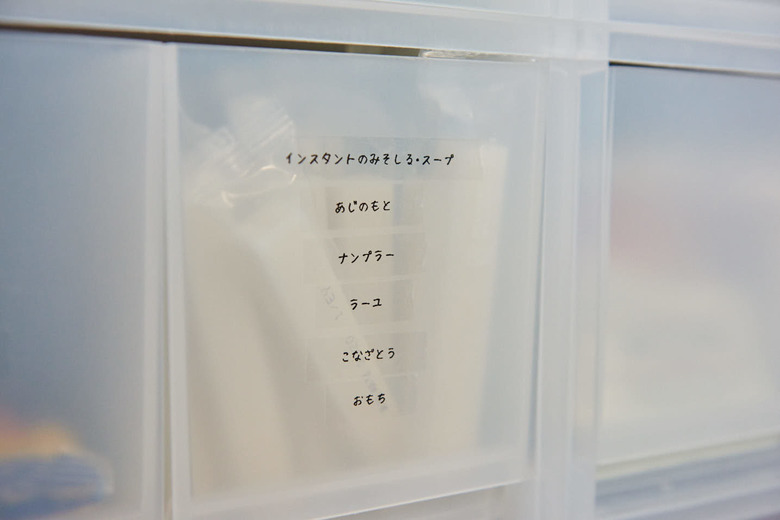 インスタントのみそしる・スープ
あじのもと
ナンプラー
ラーユ
こなざとう
おもち